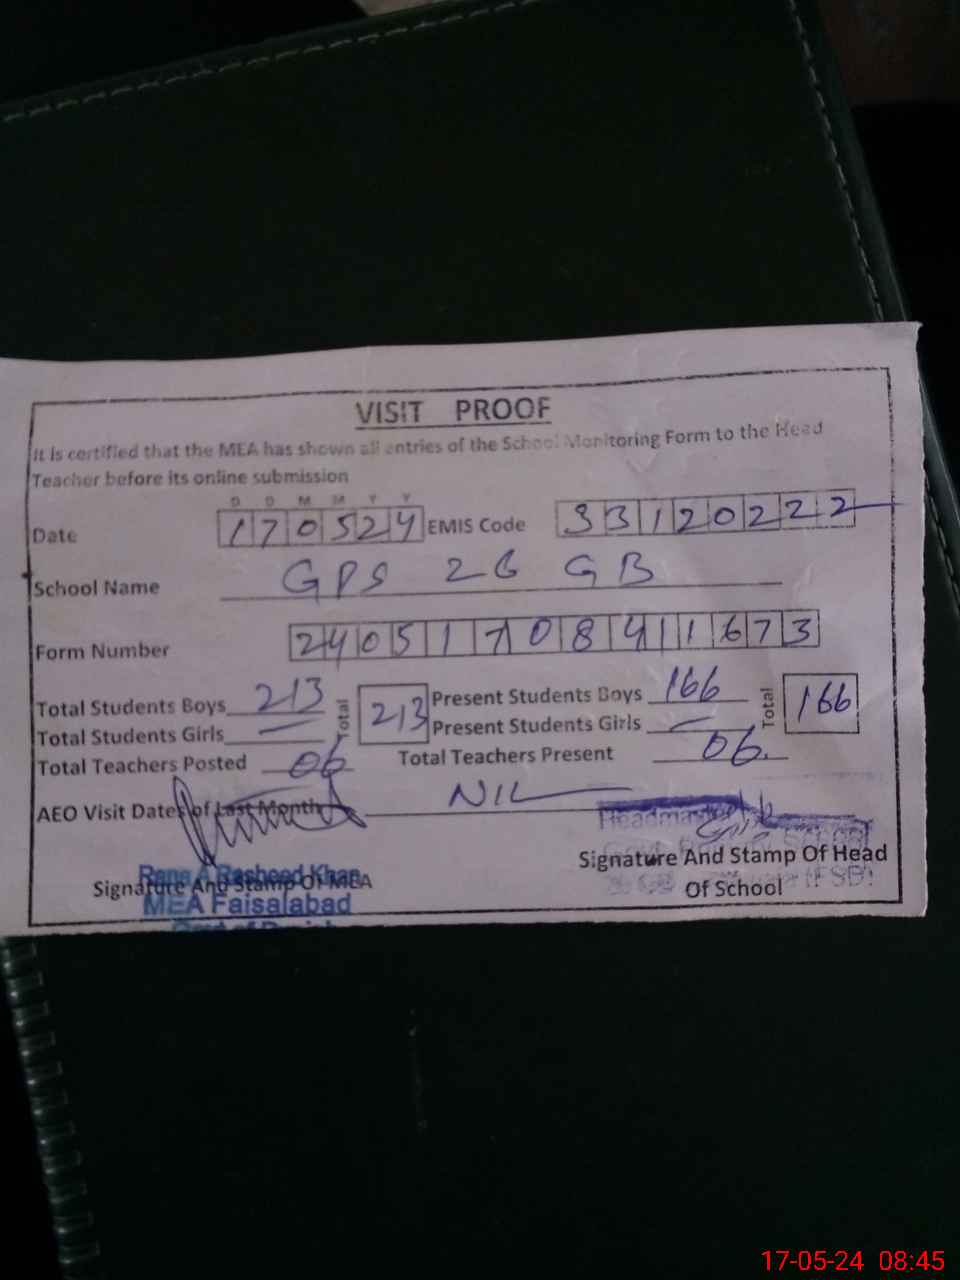 VISIT PROOF
It is certified that the MEA has shown all entries of the School Monitoring Form to the Head
Teacher before its online submission
D D M M Y Y
Date 170524 EMIS Code 33120222
School Name GPS 26 GB
Form Number 24051708411673
Total Students Boys 213 Total 213 Present Students Boys 166 Total 166
Total Students Girls — Present Students Girls —
Total Teachers Posted 06 Total Teachers Present 06.
AEO Visit Dates of Last Month NIL
Headmaster
Signature And Stamp Of Head
Of School
Rana A Rasheed Khan
Signature And Stamp Of MEA
MEA Faisalabad
17-05-24 08:45